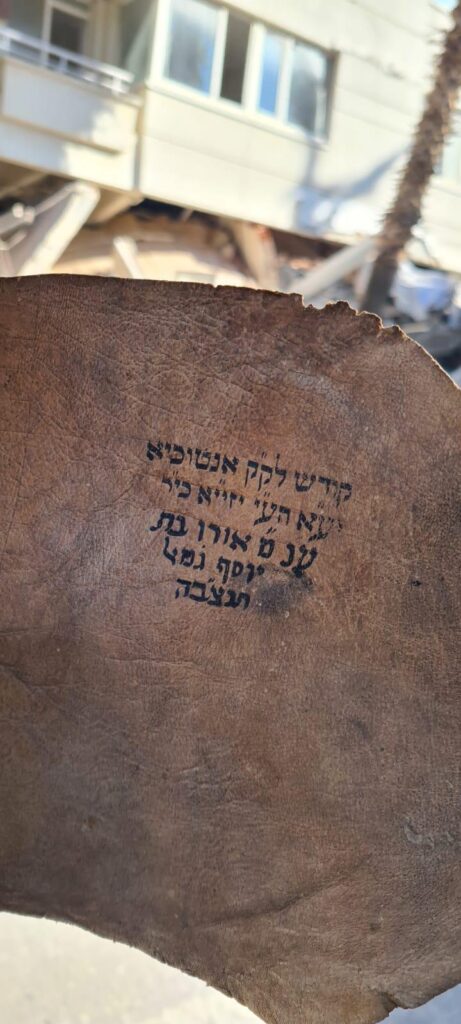 קודש לק״ק אנטוכיא
יע״א הע״י יזי״א כי״ר
ע״נ מ׳ אורו בת
יוסף גמל
תנצבה